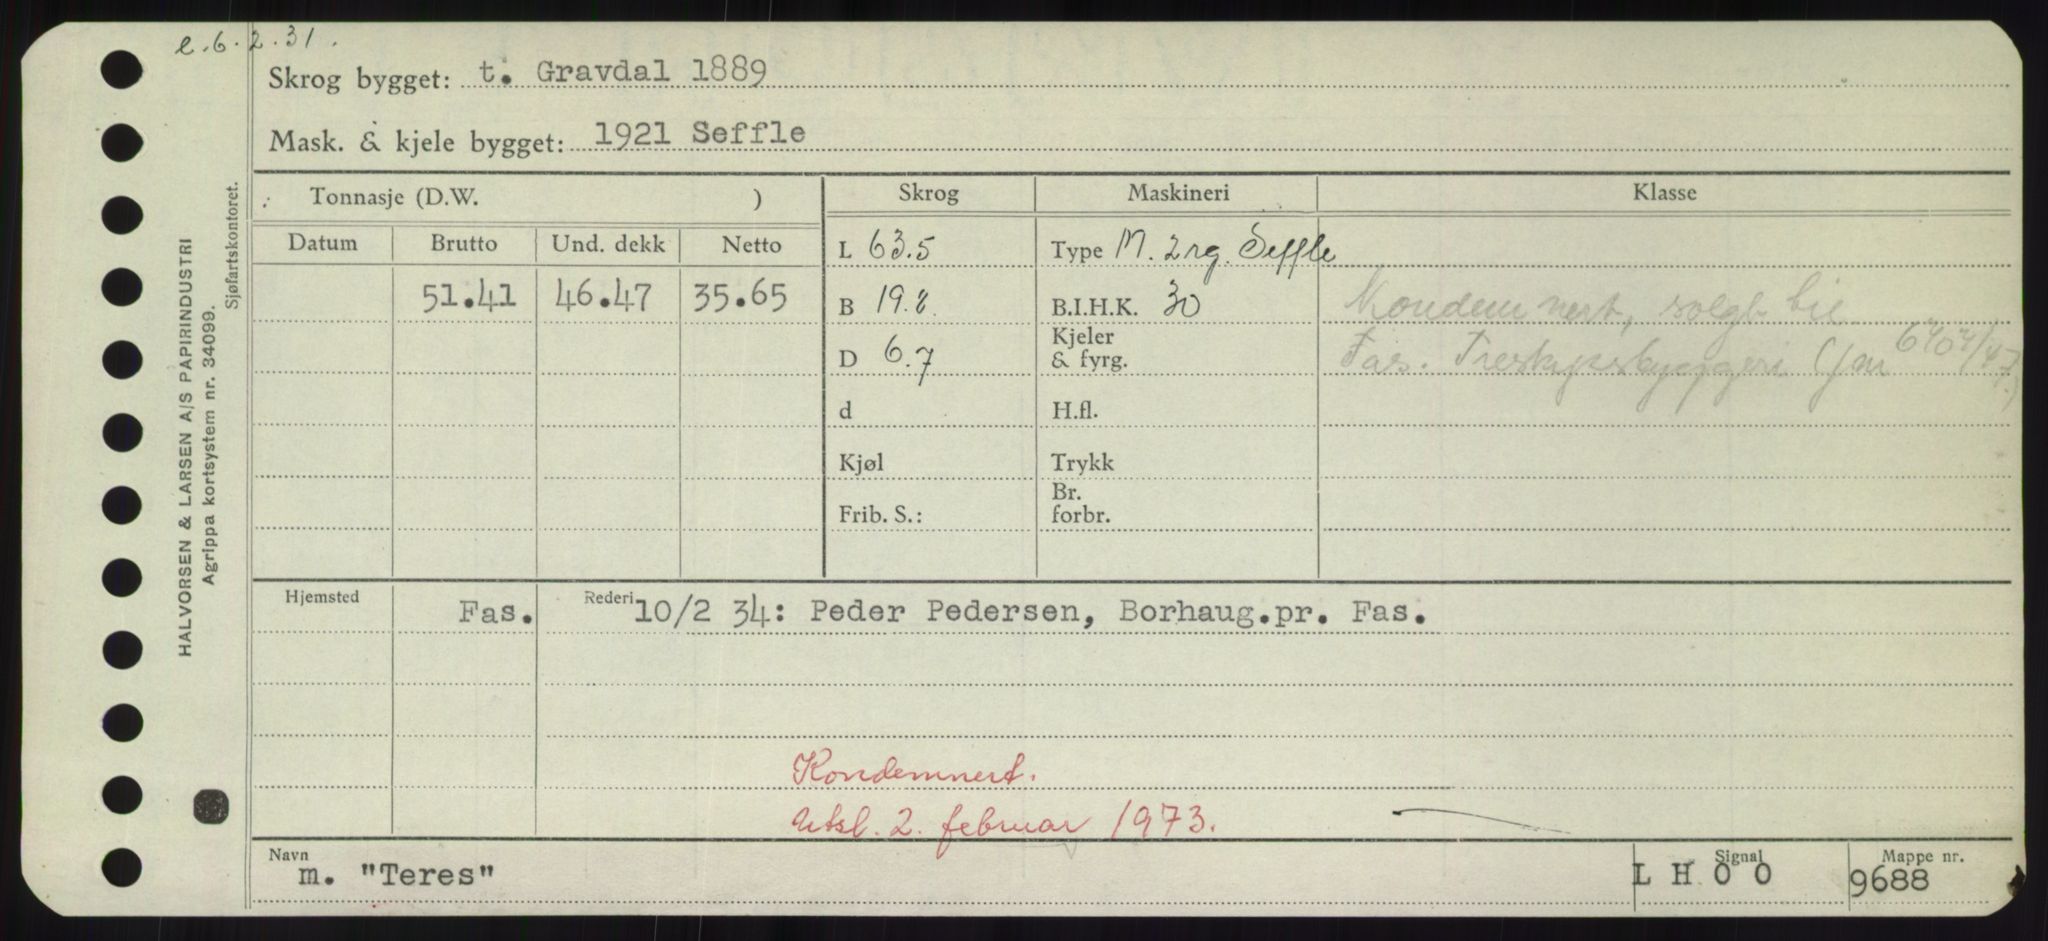 e.6.2.31.
Skrog bygget: t. Gravdal 1889
Mask. & kjele bygget: 1921 Seffle
HALVORSEN & LARSEN A/S PAPIRINDUSTRI
Agrippa kortsystem nr. 34099.
Sjøfartskontoret.
Tonnasje (D.W. )
Skrog Maskineri Klasse
Datum Brutto Und. dekk Netto
L 63.5 Type M. 2 rg. Seffle
51.41 46.47 35.65
B 19.8 B.I.H.K. 30
Kondemnert, solgt til
D 6.7 Kjeler & fyrg.
Fas. Treskipsbyggeri
d H.fl.
Kjøl Trykk
Frib. S.: Br. forbr.
Hjemsted Fas. Rederi 10/2 34: Peder Pedersen, Borhaug.pr. Fas.
Kondemnert.
Utsl. 2. februar 1973.
Navn m. "Teres"
Signal L H O O
Mappe nr. 9688